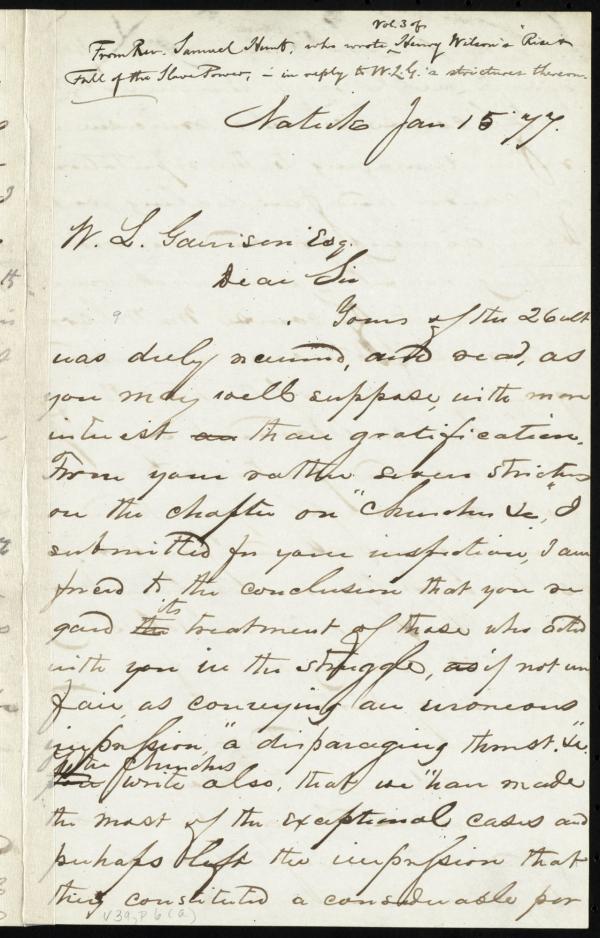 Vol. 3 of
From Rev. Samuel Hunt, who wrote Henry Wilson's "Rise &
Fall of the Slave Power, – in reply to W.L.G.'s strictures thereon.
Natick Jan 15 '77.
W. L. Garrison Esq.
Dear Sir
Yours of the 26 ult
was duly received, and read, as
you may well suppose, with more
interest than gratification.
From your rather severe strictures
on the chapter on "Churches &c", I
submitted for your inspection, I am
forced to the conclusion that you re
gard its treatment of those who acted
with you in the struggle, as if not un
fair, as conveying an erroneous
impression, "a disparaging thrust." &c.
of the Churches
write also, that we "have made
the most of the exceptional cases and
perhaps left the impression that
they constituted a considerable por
V39, P6 (a)